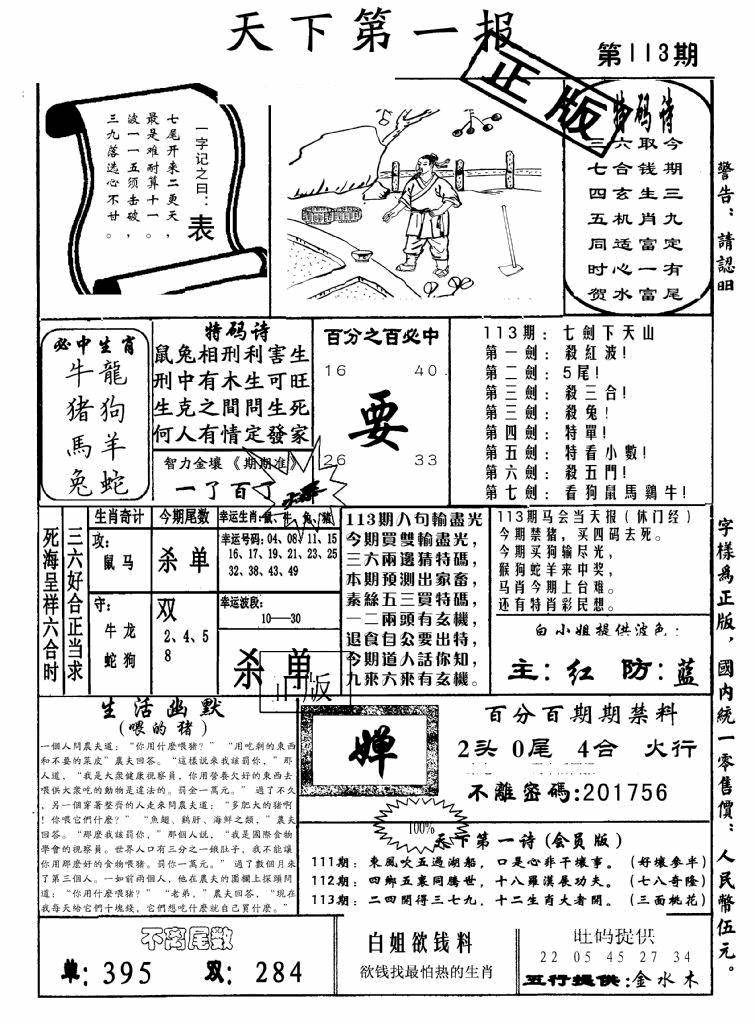 天下第一报
第113期
正版
一字记之曰：表
七尾开来二更天，
最是难耐算十一。
波一一五须击破，
三九落选心不甘。
特码诗
三六取今
七合钱期
四玄生三
五机肖九
同适富定
时心一有
贺水富尾
警告：請認明
字樣爲正版，國内統一零售價：人民幣伍元。
必中生肖
牛龍
猪狗
馬羊
兔蛇
特码诗
鼠兔相刑利害生
刑中有木生可旺
生克之間問生死
何人有情定發家
智力金壤《期期准》
一了百了
百分之百必中
16 40.
要
26 33
113期：七劍下天山
第一劍：殺紅波！
第二劍：5尾！
第三劍：殺三合！
第三劍：殺兔！
第四劍：特單！
第五劍：特看小數！
第六劍：殺五門！
第七劍：看狗鼠馬鷄牛！
死海呈样六合时
三六好合正当求
生肖奇计
攻：
鼠马
守：
牛龙
蛇狗
今期尾数
杀单
双
2、4、5
8
幸运生肖：鼠、牛、兔、猴
幸运号码：04、08、11、15
16、17、19、21、23、25
32、38、43、49
幸运波段：
10—30
杀单
正版
113期八句輸盡光
今期買雙輸盡光，
三六兩邊猜特碼，
本期預測出家畜，
素絲五三買特碼，
一二兩頭有玄機，
退食自公要出特，
今期道人話你知，
九來六來有玄機。
113期马会当天报（休门经）
今期禁猪，买四码去死。
今期买狗输尽光，
猴狗蛇羊来中奖，
马肖今期上台难。
还有特肖彩民想。
白小姐提供波色：
主：红 防：蓝
生活幽默
（喂的猪）
一個人問農夫道：“你用什麽喂猪？” “用吃剩的東西
和不要的菜皮”農夫回答。“這樣説來我該罰你，”那
人道，“我是大衆健康視察員，你用營養欠好的東西去
喂供大衆吃的動物是違法的。罰金一萬元。” 過了不久
，另一個穿著整齊的人走來問農夫道：“多肥大的猪啊
！你喂它們什麽？” “魚翅、鷄肝、海鮮之類，”農夫
回答。“那麽我該罰你，”那個人説，“我是國際食物
學會的視察員。世界人口有三分之一餓肚子，我不能讓
你用那麽好的食物喂猪。罰你一萬元。” 過了數個月來
了第三個人。一如前兩個人，他在農夫的圍欄上探頭問
道：“你用什麽喂猪？” “老弟，”農夫回答，“現在
我每天給它們十塊錢，它們想吃什麽就自己買什麽。”
婵
100%
百分百期期禁料
2头 0尾 4合 火行
不離密碼：201756
天下第一诗（会员版）
111期：東風吹五過湖船，口是心非干壞事。（好壞參半）
112期：四鄉五裏同騰世，十八羅漢展功夫。（七八奇隆）
113期：二四開得三七九，十二生肖大者開。（三面桃花）
不离尾数
单：395 双：284
白姐欲钱料
欲钱找最怕热的生肖
旺码提供
22 05 45 27 34
五行提供：金水木